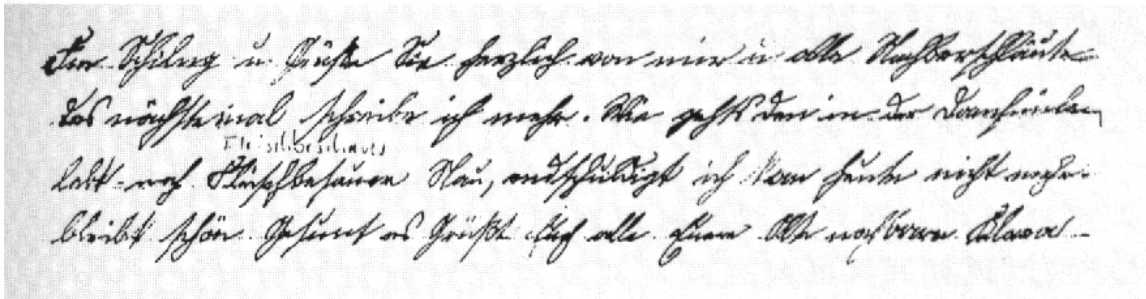 Schilng u. Grüße Sie herzlich von mir u alle Nachberschläute
das nächste mal schreibe ich mehr. Wie gehts den in der
Fleischbeschauer
lebt noch Fleischbesauer Nau, endschuldigt ich kan heute nicht mehr.
bleibt schön Gesunt es Grüßt Euch alle Euere Alte nachbarn Klara